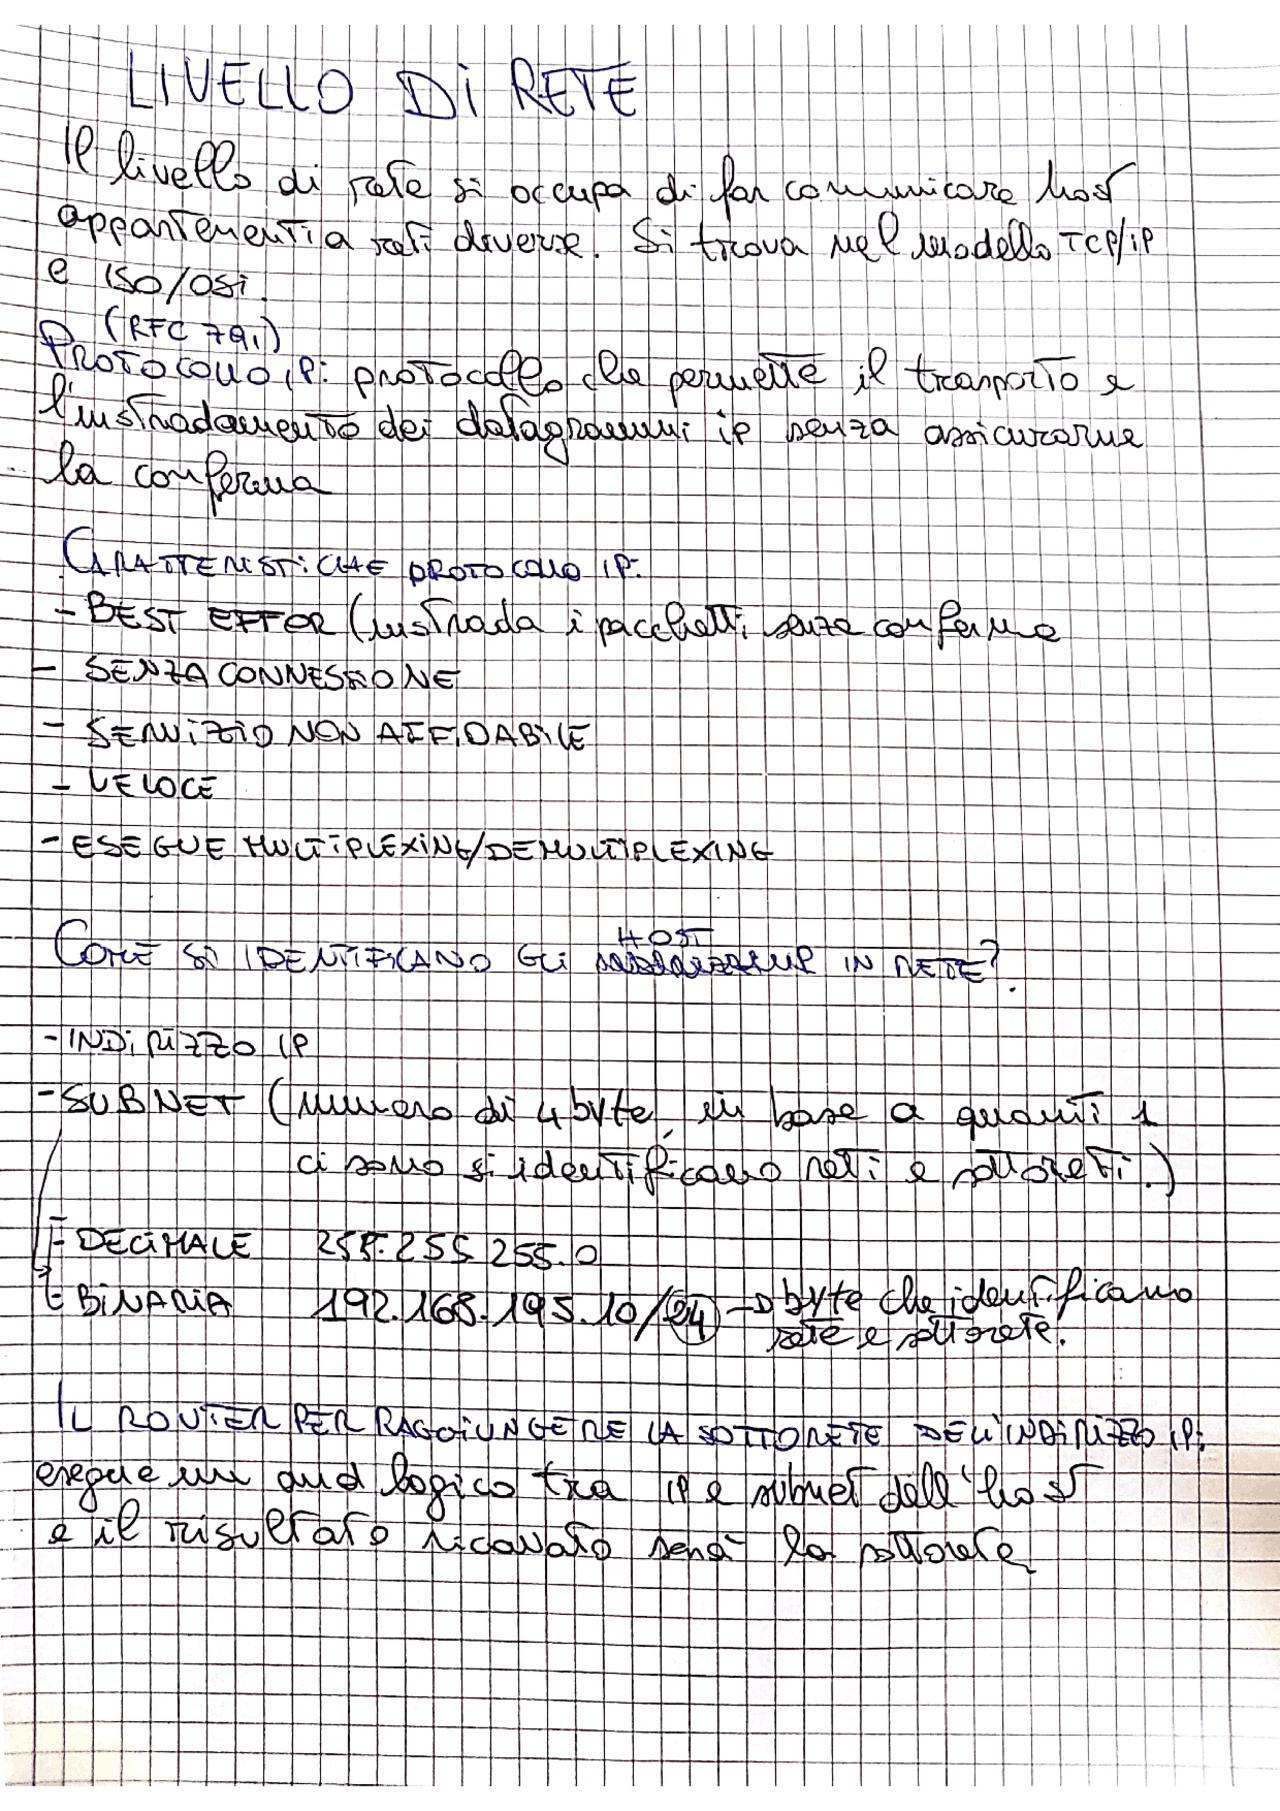 LIVELLO DI RETE
Il livello di rete si occupa di far comunicare host
appartenenti a reti diverse. Si trova nel modello TCP/IP
e ISO/OSI.
(RFC 791)
PROTOCOLLO IP: protocollo che permette il trasporto e
l'instradamento dei datagrammi ip senza assicurarne
la conferma
CARATTERISTICHE PROTOCOLLO IP:
- BEST EFFOR (instrada i pacchetti senza conferma
- SENZA CONNESSIONE
- SERVIZIO NON AFFIDABILE
- VELOCE
- ESEGUE MULTIPLEXING/DEMULTIPLEXING
HOST
COME SI IDENTIFICANO GLI IN RETE?
- INDIRIZZO IP
- SUBNET (numero di 4 byte, in base a quanti 1
ci sono si identificano reti e sottoreti.)
- DECIMALE 255.255.255.0
- BINARIA 192.168.195.10/24 → byte che identificano
rete e sottorete.
IL ROUTER PER RAGGIUNGERE LA SOTTORETE DELL'INDIRIZZO IP:
esegue un and logico tra IP e subnet dell'host
e il risultato ricavato sarà la sottorete